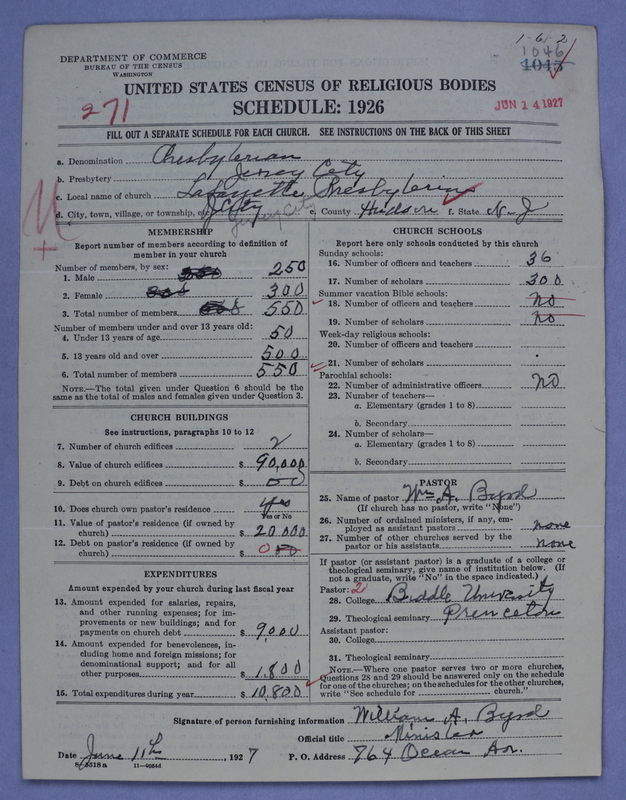 1-6-2
1046
1045
DEPARTMENT OF COMMERCE
BUREAU OF THE CENSUS
WASHINGTON
UNITED STATES CENSUS OF RELIGIOUS BODIES
SCHEDULE: 1926
271
JUN 14 1927
FILL OUT A SEPARATE SCHEDULE FOR EACH CHURCH. SEE INSTRUCTIONS ON THE BACK OF THIS SHEET
a. Denomination Presbyterian
b. Presbytery Jersey City
c. Local name of church Lafayette Presbyterian
d. City, town, village, or township, etc. J City Jersey City e. County Hudson f. State N-J
MEMBERSHIP
Report number of members according to definition of
member in your church
Number of members, by sex:
1. Male 250
2. Female 300
3. Total number of members 550
Number of members under and over 13 years old:
4. Under 13 years of age 50
5. 13 years old and over 500
6. Total number of members 550
NOTE.—The total given under Question 6 should be the
same as the total of males and females given under Question 3.
CHURCH BUILDINGS
See instructions, paragraphs 10 to 12
7. Number of church edifices 2
8. Value of church edifices $ 90,000
9. Debt on church edifices $
10. Does church own pastor's residence yes
Yes or No
11. Value of pastor's residence (if owned by
church) $ 20.000
12. Debt on pastor's residence (if owned by
church) $ 0
EXPENDITURES
Amount expended by your church during last fiscal year
13. Amount expended for salaries, repairs,
and other running expenses; for im-
provements or new buildings; and for
payments on church debt $ 9,000
14. Amount expended for benevolences, in-
cluding home and foreign missions; for
denominational support; and for all
other purposes $ 1.800
15. Total expenditures during year $ 10,800
CHURCH SCHOOLS
Report here only schools conducted by this church
Sunday schools:
16. Number of officers and teachers 36
17. Number of scholars 300
Summer vacation Bible schools:
18. Number of officers and teachers no
19. Number of scholars no
Week-day religious schools:
20. Number of officers and teachers
21. Number of scholars
Parochial schools:
22. Number of administrative officers no
23. Number of teachers—
a. Elementary (grades 1 to 8)
b. Secondary
24. Number of scholars—
a. Elementary (grades 1 to 8)
b. Secondary
PASTOR
25. Name of pastor Wm A. Byrd
(If church has no pastor, write "None")
26. Number of ordained ministers, if any, em-
ployed as assistant pastors none
27. Number of other churches served by the
pastor or his assistants none
If pastor (or assistant pastor) is a graduate of a college or
theological seminary, give name of institution below. (If
not a graduate, write "No" in the space indicated.)
Pastor: 2
28. College Biddle University
29. Theological seminary Princeton
Assistant pastor:
30. College
31. Theological seminary
NOTE.—Where one pastor serves two or more churches,
Questions 28 and 29 should be answered only on the schedule
for one of the churches; on the schedules for the other churches,
write "See schedule for church."
Signature of person furnishing information William A. Byrd
Official title Minister
Date June 11th, 1927 P. O. Address 764 Ocean Av.
8-5518 a 11-90344